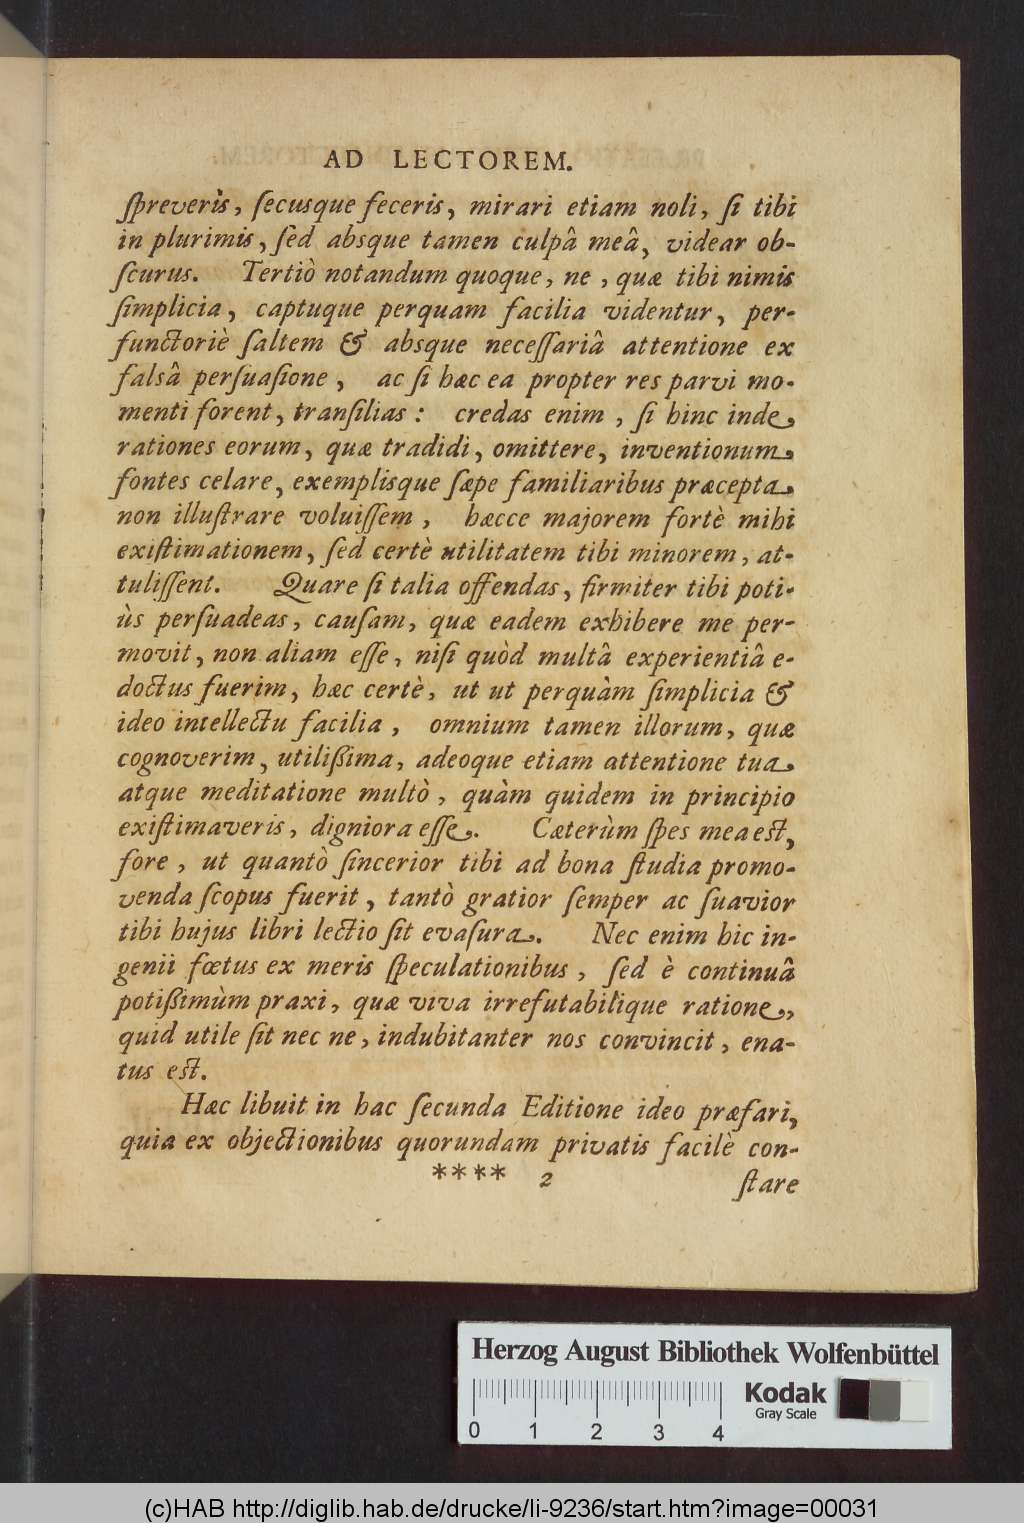 AD LECTOREM.
ſpreveris, ſecusque feceris, mirari etiam noli, ſi tibi
in plurimis, ſed absque tamen culpâ meâ, videar ob-
ſcurus. Tertiò notandum quoque, ne, quæ tibi nimis
ſimplicia, captuque perquam facilia videntur, per-
functoriè ſaltem & absque neceſſariâ attentione ex
falsâ perſuaſione, ac ſi hæc ea propter res parvi mo-
menti forent, tranſilias: credas enim, ſi hinc inde
rationes eorum, quæ tradidi, omittere, inventionum
fontes celare, exemplisque ſæpe familiaribus præcepta
non illuſtrare voluiſſem, hæcce majorem fortè mihi
exiſtimationem, ſed certè utilitatem tibi minorem, at-
tuliſſent. Quare ſi talia offendas, firmiter tibi poti-
ùs perſuadeas, cauſam, quæ eadem exhibere me per-
movit, non aliam eſſe, niſi quòd multâ experientiâ e-
doctus fuerim, hæc certè, ut ut perquàm ſimplicia &
ideo intellectu facilia, omnium tamen illorum, quæ
cognoverim, utilißima, adeoque etiam attentione tua
atque meditatione multò, quàm quidem in principio
exiſtimaveris, digniora eſſe. Cæterùm ſpes mea eſt,
fore, ut quantò ſincerior tibi ad bona ſtudia promo-
venda ſcopus fuerit, tantò gratior ſemper ac ſuavior
tibi hujus libri lectio ſit evaſura. Nec enim hic in-
genii fœtus ex meris ſpeculationibus, ſed è continuâ
potißimùm praxi, quæ viva irrefutabilique ratione,
quid utile ſit nec ne, indubitanter nos convincit, ena-
tus eſt.
Hæc libuit in hac ſecunda Editione ideo præfari,
quia ex objectionibus quorundam privatis facilè con-
**** 2 ſtare
Herzog August Bibliothek Wolfenbüttel
Kodak
Gray Scale
0 1 2 3 4
(c)HAB http://diglib.hab.de/drucke/li-9236/start.htm?image=00031